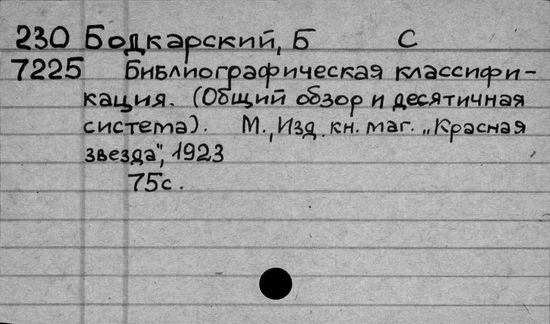 230 Бодкарский, Б С
7225 Библиографическая классифи-
кация. (Общий обзор и десятичная
система). М., Изд. кн. маг. „Красная
звезда", 1923
75с.